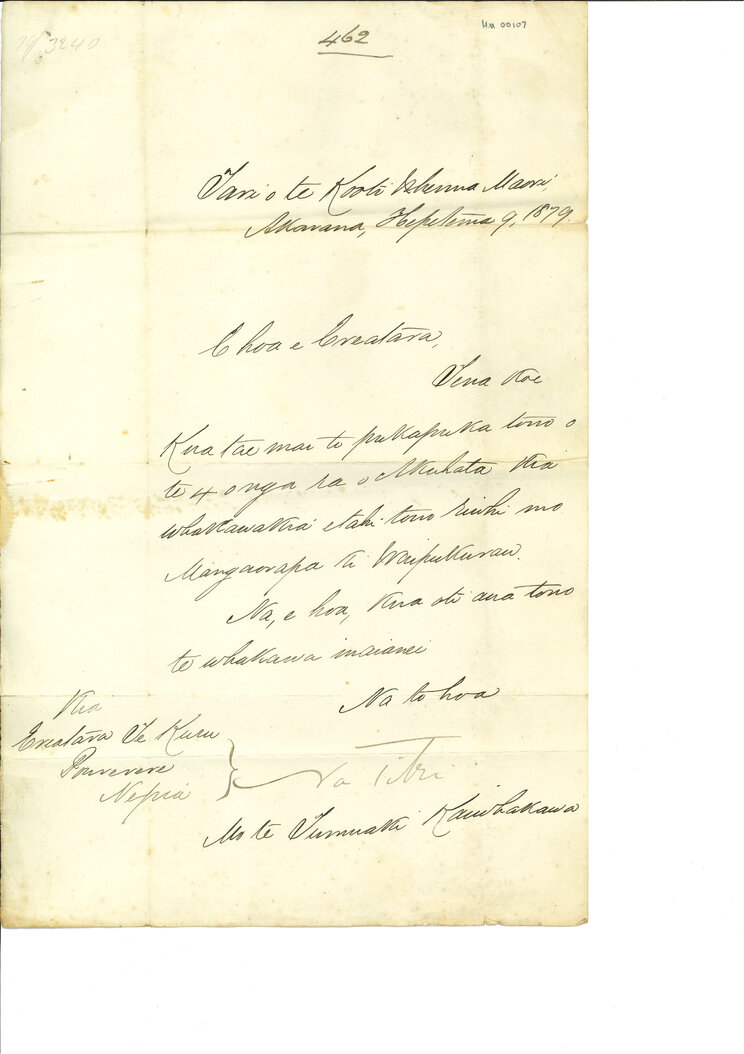 79/3240
462
HM 00107
Tari o te Kooti Whenua Maori,
Akarana, Hepetema 9, 1879.
E hoa e Ereatara,
Tena koe
Kua tae mai to pukapuka tono o
te 4 o nga ra o Akuhata kia
whakawakia etahi tono mo
Mangaorapa ki Waipukurau.
Na, e hoa, kua oti ana tono
te whakawa inaianei
Na to hoa
Kia
Ereatara Te Kuru
Pourerere
Nepia
Na
Mo te Tumuaki Kaiwhakawa